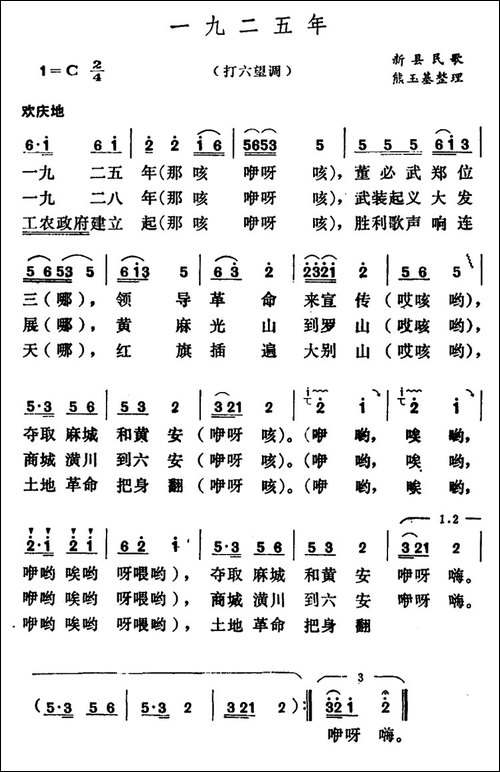 一九二五年
1=C 2/4
（打六望调）
新县民歌
熊玉基整理
欢庆地
6·i 6 i | 2 2 i 6 | 5653 5 | 5 5 5 6 i 3 |
一九 二五 年(那 咳 咿呀 咳)，董必武 郑位
一九 二八 年(那 咳 咿呀 咳)，武装起义 大发
工农政府建立 起(那 咳 咿呀 咳)，胜利歌声 响连
5 6 53 5 | 6 i 3 5 | 6 3 2 | 2321 2 | 5 6 5 |
三(哪)， 领 导 革 命 来宣 传 (哎咳 哟)，
展(哪)， 黄 麻 光 山 到罗 山 (哎咳 哟)，
天(哪)， 红 旗 插 遍 大别 山 (哎咳 哟)，
5·3 5 6 | 5 3 2 | 3 21 2 | 2 i | 2 i |
夺取 麻城 和黄 安 (咿呀 咳)。(咿 哟， 唉 哟，
商城 潢川 到六 安 (咿呀 咳)。(咿 哟， 唉 哟，
土地 革命 把身 翻 (咿呀 咳)。(咿 哟， 唉 哟，
1.2
2·i 2 i | 6 2 i | 5·3 5 6 | 5 3 2 | 3 21 2 |
咿哟 唉哟 呀喂哟)， 夺取 麻城 和黄 安 咿呀 嗨。
咿哟 唉哟 呀喂哟)， 商城 潢川 到六 安 咿呀 嗨。
咿哟 唉哟 呀喂哟)， 土地 革命 把身 翻
3
(5·3 5 6 | 5 3 2 | 5·3 5 6 | 5 3 2 | 3 21 2):‖ 3 2 i 2 ‖
咿呀 嗨。